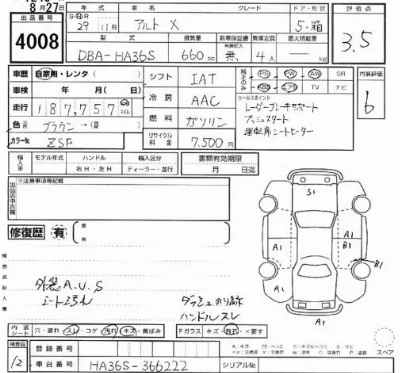 8月27日
年式 車名 グレード ドア・形状 評価点
出品番号 4008
29年11月 アルト X 5・箱 3.5
型式 排気量 乗車定員 最大積載量
DBA-HA36S 660cc 4人 kg
車歴 自家用・レンタ( ) シフト IAT PS PW AW SR 内装評価
車検 年 月(日) 冷房 AAC AB エアB TV ナビ b
走行 187,757 セールスポイント
燃料 ガソリン レーダーブレーキサポート
色 ブラウン→( ) プッシュスタート
リサイクル料金 7,500円 運転席シートヒーター
カラーNo. ZSF
輸入車 モデル年式 ハンドル 輸入区分 書類有効期限
年 右H・左H ディーラー・並行 月 日迄
※注意事項等記載
S1
修復歴 有
A1 A1 A1
B1 B1
外装A.U.S
シート汚れ ダッシュのり跡
ハンドルスレ
A1 A1
内装 シート 穴・破れ スレ・コゲ 汚れ キズ・黄ばみ Fガラス キズ・飛石・×要す
スペア
検査員 12 登録番号
車台番号 HA36S-366222 シリアルNo.